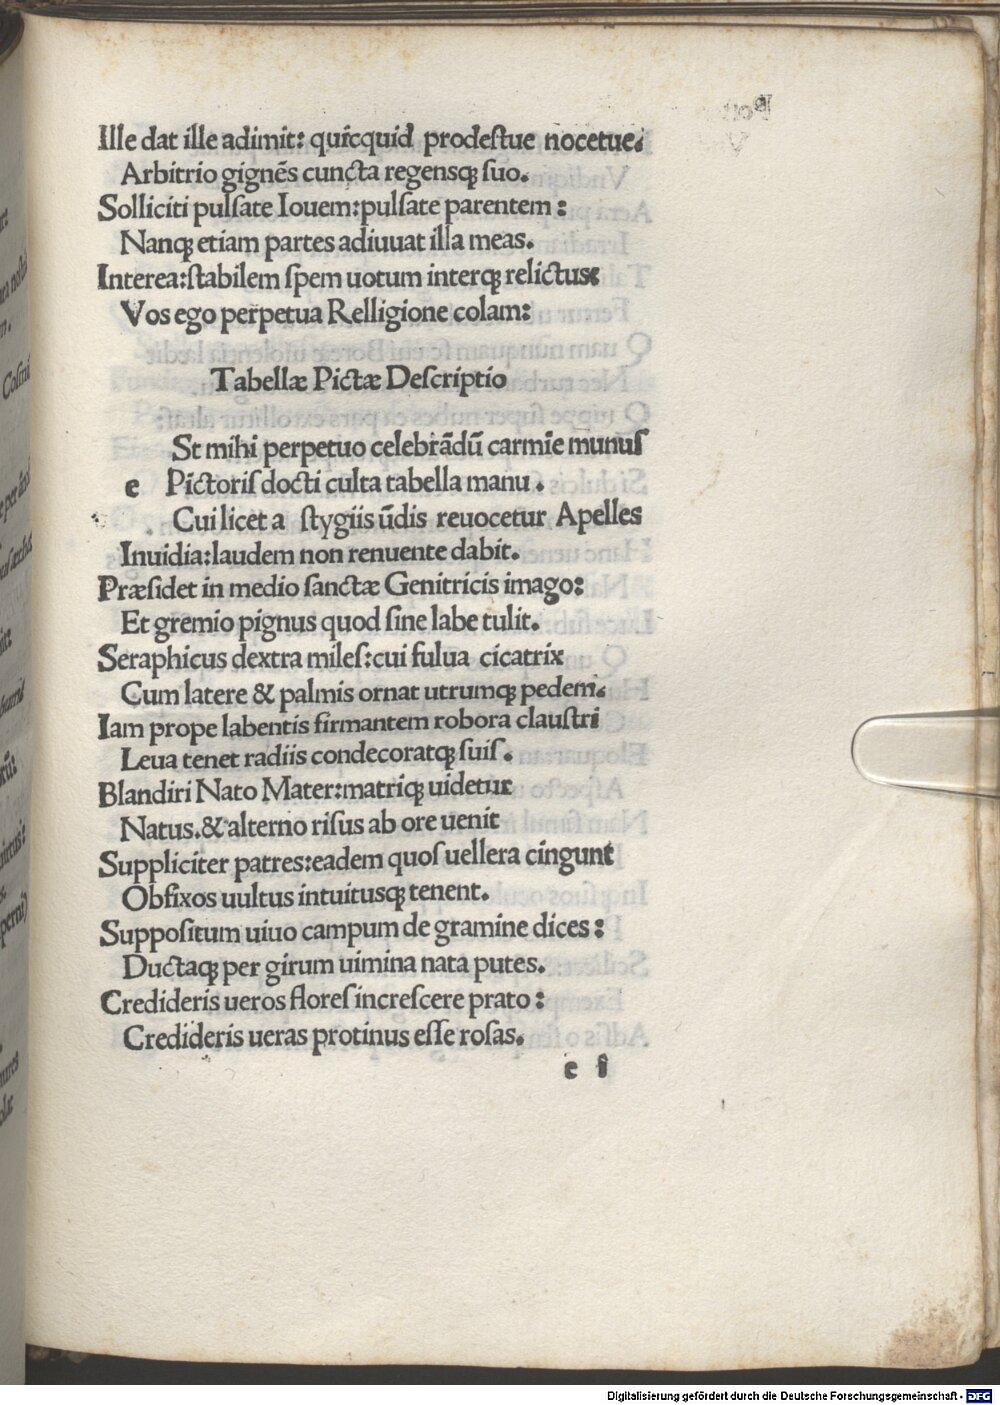 Ille dat ille adimit: quicquid prodeſtue nocetue.
Arbitrio gignẽs cuncta regensqꝫ ſuo.
Solliciti pulſate Iouem:pulſate parentem:
Nanqꝫ etiam partes adiuuat illa meas.
Interea:ſtabilem ſpem uotum interqꝫ relictus
Vos ego perpetua Relligione colam:
Tabellæ Pictæ Deſcriptio
St mihi perpetuo celebrãdũ carmĩe munuſ
e Pictoriſ docti culta tabella manu.
Cui licet a ſtygiis ũdis reuocetur Apelles
Inuidia:laudem non renuente dabit.
Præſidet in medio ſanctæ Genitricis imago:
Et gremio pignus quod ſine labe tulit.
Seraphicus dextra mileſ:cui fulua cicatrix
Cum latere & palmis ornat utrumqꝫ pedem.
Iam prope labentis firmantem robora clauſtri
Leua tenet radiis condecoratqꝫ ſuiſ.
Blandiri Nato Mater:matriqꝫ uidetur
Natus.& alterno riſus ab ore uenit
Suppliciter patres:eadem quoſ uellera cingunt
Obfixos uultus intuitusqꝫ tenent.
Suppoſitum uiuo campum de gramine dices:
Ductaqꝫ per girum uimina nata putes.
Credideris ueros floreſ increſcere prato:
Credideris ueras protinus eſſe roſas.
e i
Digitalisierung gefördert durch die Deutsche Forschungsgemeinschaft - DFG